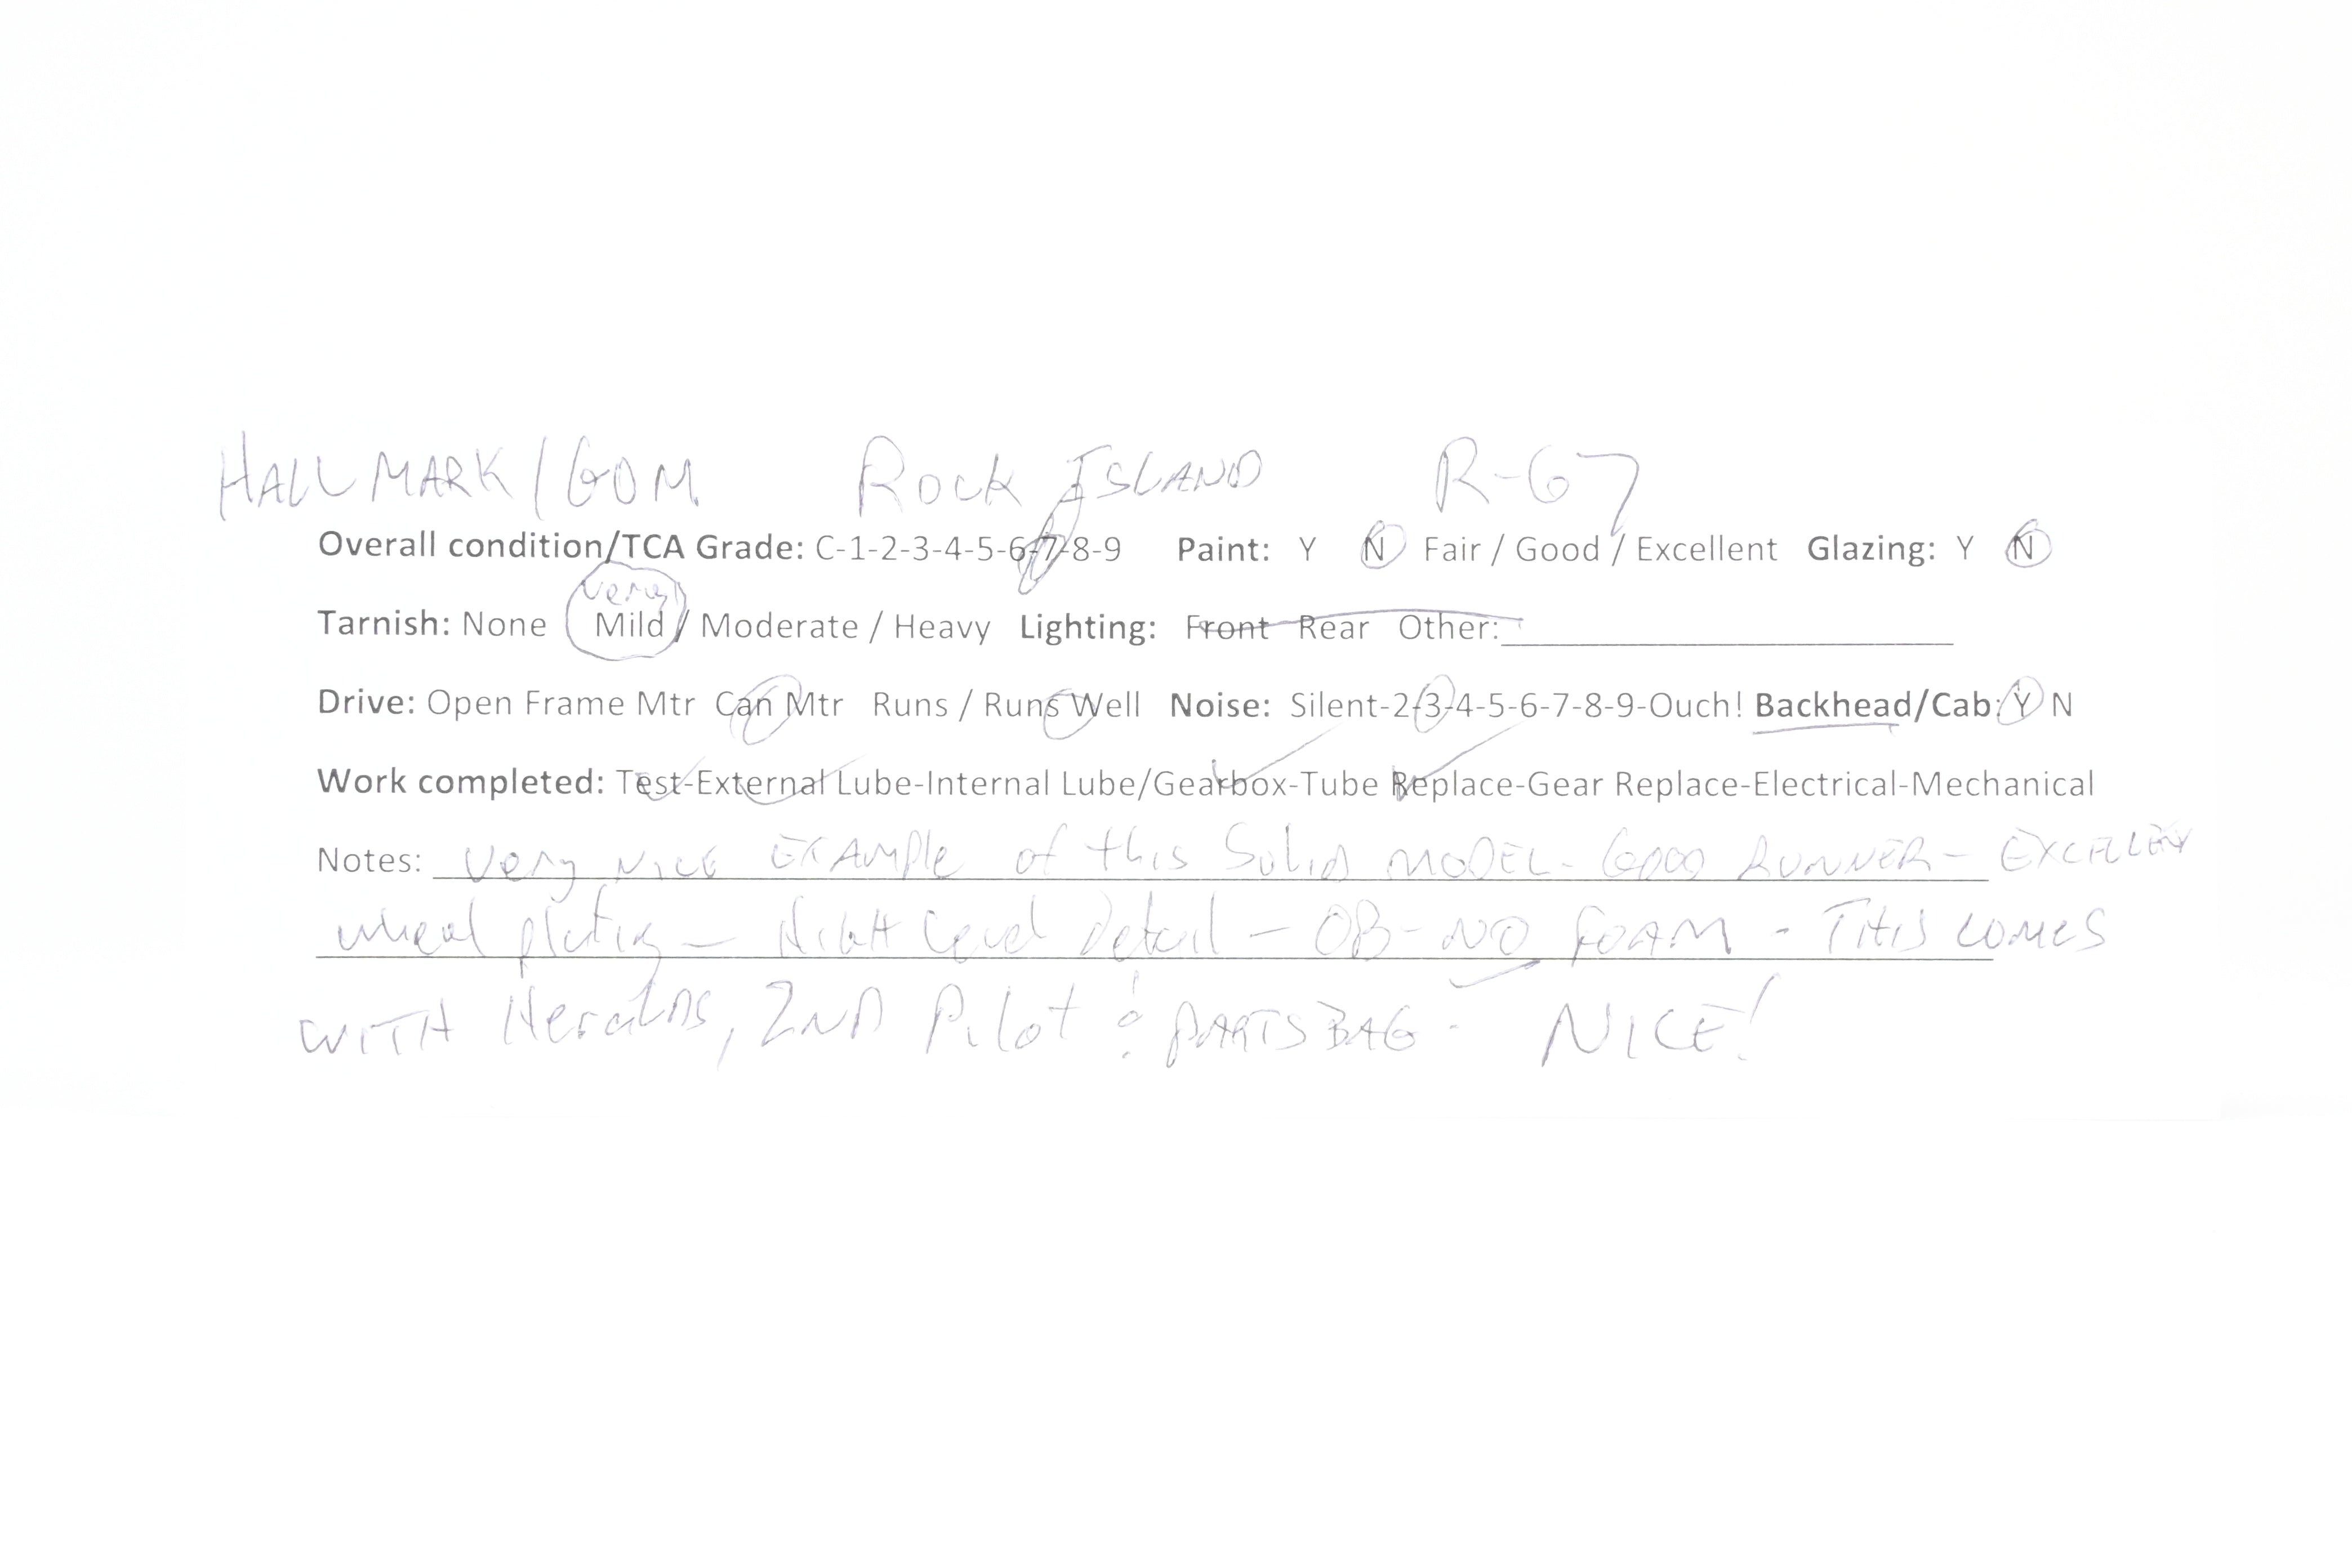 HALLMARK/GOM ROCK ISLAND R-67
Overall condition/TCA Grade: C-1-2-3-4-5-6-7-8-9 Paint: Y N Fair / Good / Excellent Glazing: Y N
very
Tarnish: None Mild / Moderate / Heavy Lighting: Front Rear Other:
Drive: Open Frame Mtr Can Mtr Runs / Runs Well Noise: Silent-2-3-4-5-6-7-8-9-Ouch! Backhead/Cab: Y N
Work completed: Test-External Lube-Internal Lube/Gearbox-Tube Replace-Gear Replace-Electrical-Mechanical
Notes: Very NICE EXAMPle of this Solid MODEL - GOOD RUNNER - EXCELLENT
wheel plating - HIGH Level Detail - OB - NO FOAM - THIS COMES
WITH Heralds, 2ND Pilot & PARTS BAG - NICE!